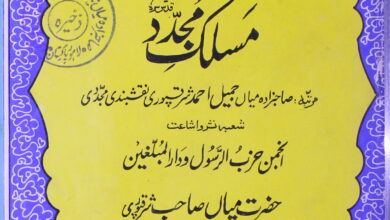 مسلک مجدّد
قدس سرہ
مرتبہ: صاحبزادہ میاں جمیل احمد شرقپوری نقشبندی مجدّدی
شعبہ نشر و اشاعت
انجمن حزب الرسول و دار المبلغین
حضرت میاں صاحب شرقپوری
ذخیرہ